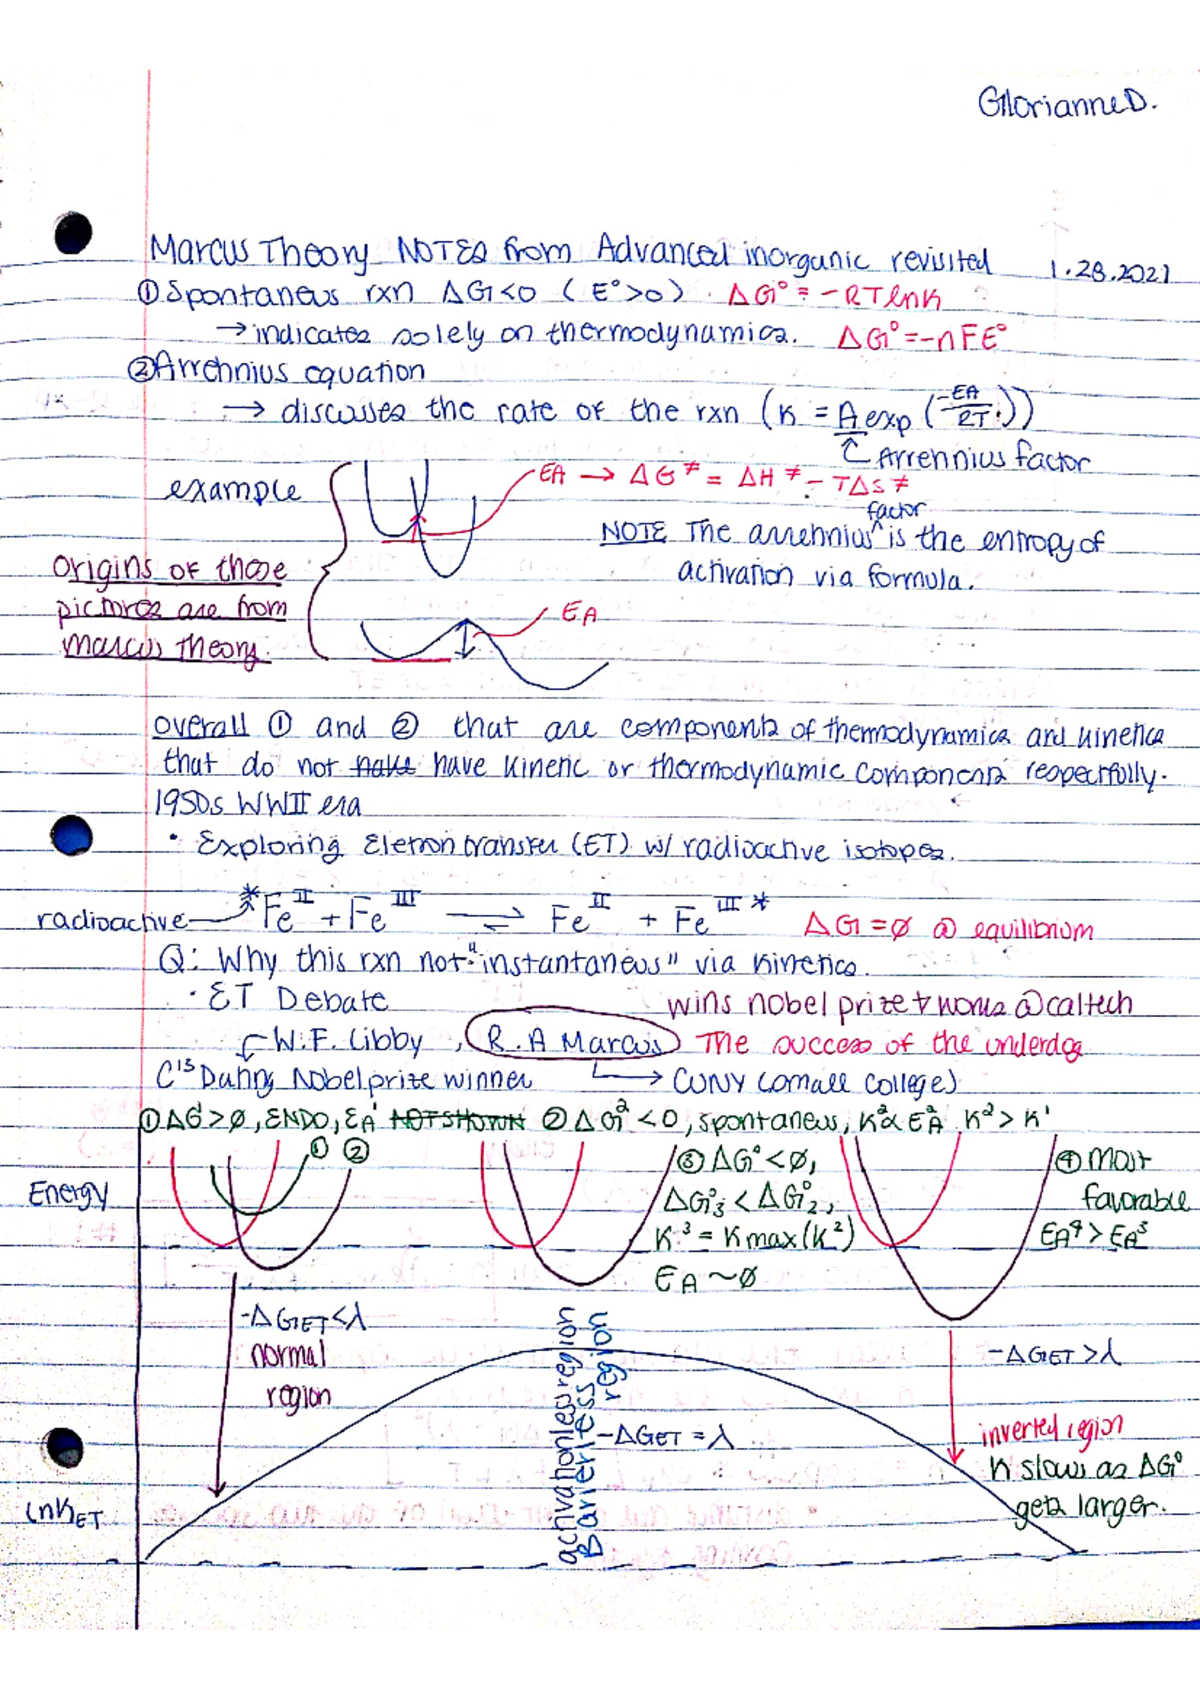 Gllorianne D.
Marcus Theory NOTES from Advanced inorganic revisited 1.28.2021
① Spontaneus rxn ΔG<0 (E°>0) ΔG° = -RTlnK
→ indicates solely on thermodynamics. ΔG° = -nFE°
② Arrehnius equation
→ discusses the rate of the rxn (K = A exp (-EA/RT))
↑ Arrennius factor
example
EA → ΔG≠ = ΔH≠ - TΔS≠
NOTE The arrehnius ^factor is the entropy of
activation via formula.
Origins of those
pictures are from
Marcus Theory.
EA
overall ① and ② that are components of thermodynamics and kinetics
that do not have kinetic or thermodynamic components respectfully.
1950s WWII era
• Exploring Eletron transfer (ET) w/ radioactive isotopes.
radioactive *Fe^II + Fe^III ⇌ Fe^II + Fe^III* ΔG = ∅ @ equilibrium
Q: Why this rxn not "instantaneus" via kinetics.
• ET Debate wins nobel prize & works @ caltech
W.F. Libby, R.A Marcus The success of the underdog
C^13 Dating Nobel prize winner → CUNY (small college)
① ΔG'>∅, ENDO, EA' NOT SHOWN ② ΔG²<0, spontaneus, K²∝EA² K²>K'
① ② ③ ΔG°<∅, ④ Most
Energy ΔG°3 < ΔG°2, favorable
K³ = Kmax (K²) EA⁴ > EA³
EA ~∅
-ΔGET<λ
normal
region
activationless region
Barierless region
-ΔGET = λ
-ΔGET >λ
inverted region
K slows as ΔG°
gets larger.
lnKET